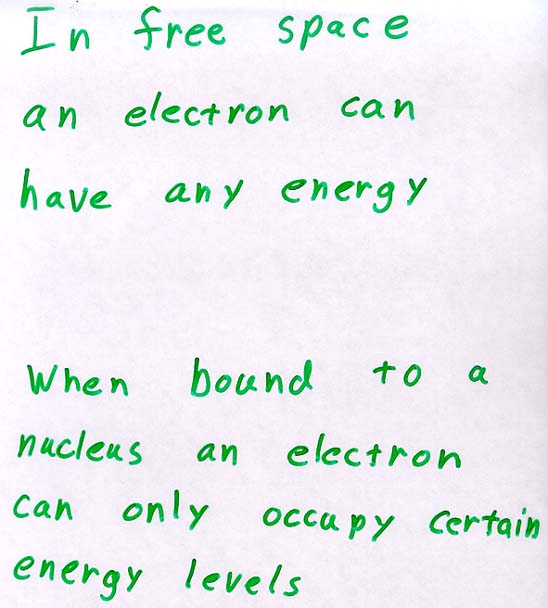 In free space
an electron can
have any energy
When bound to a
nucleus an electron
can only occupy certain
energy levels